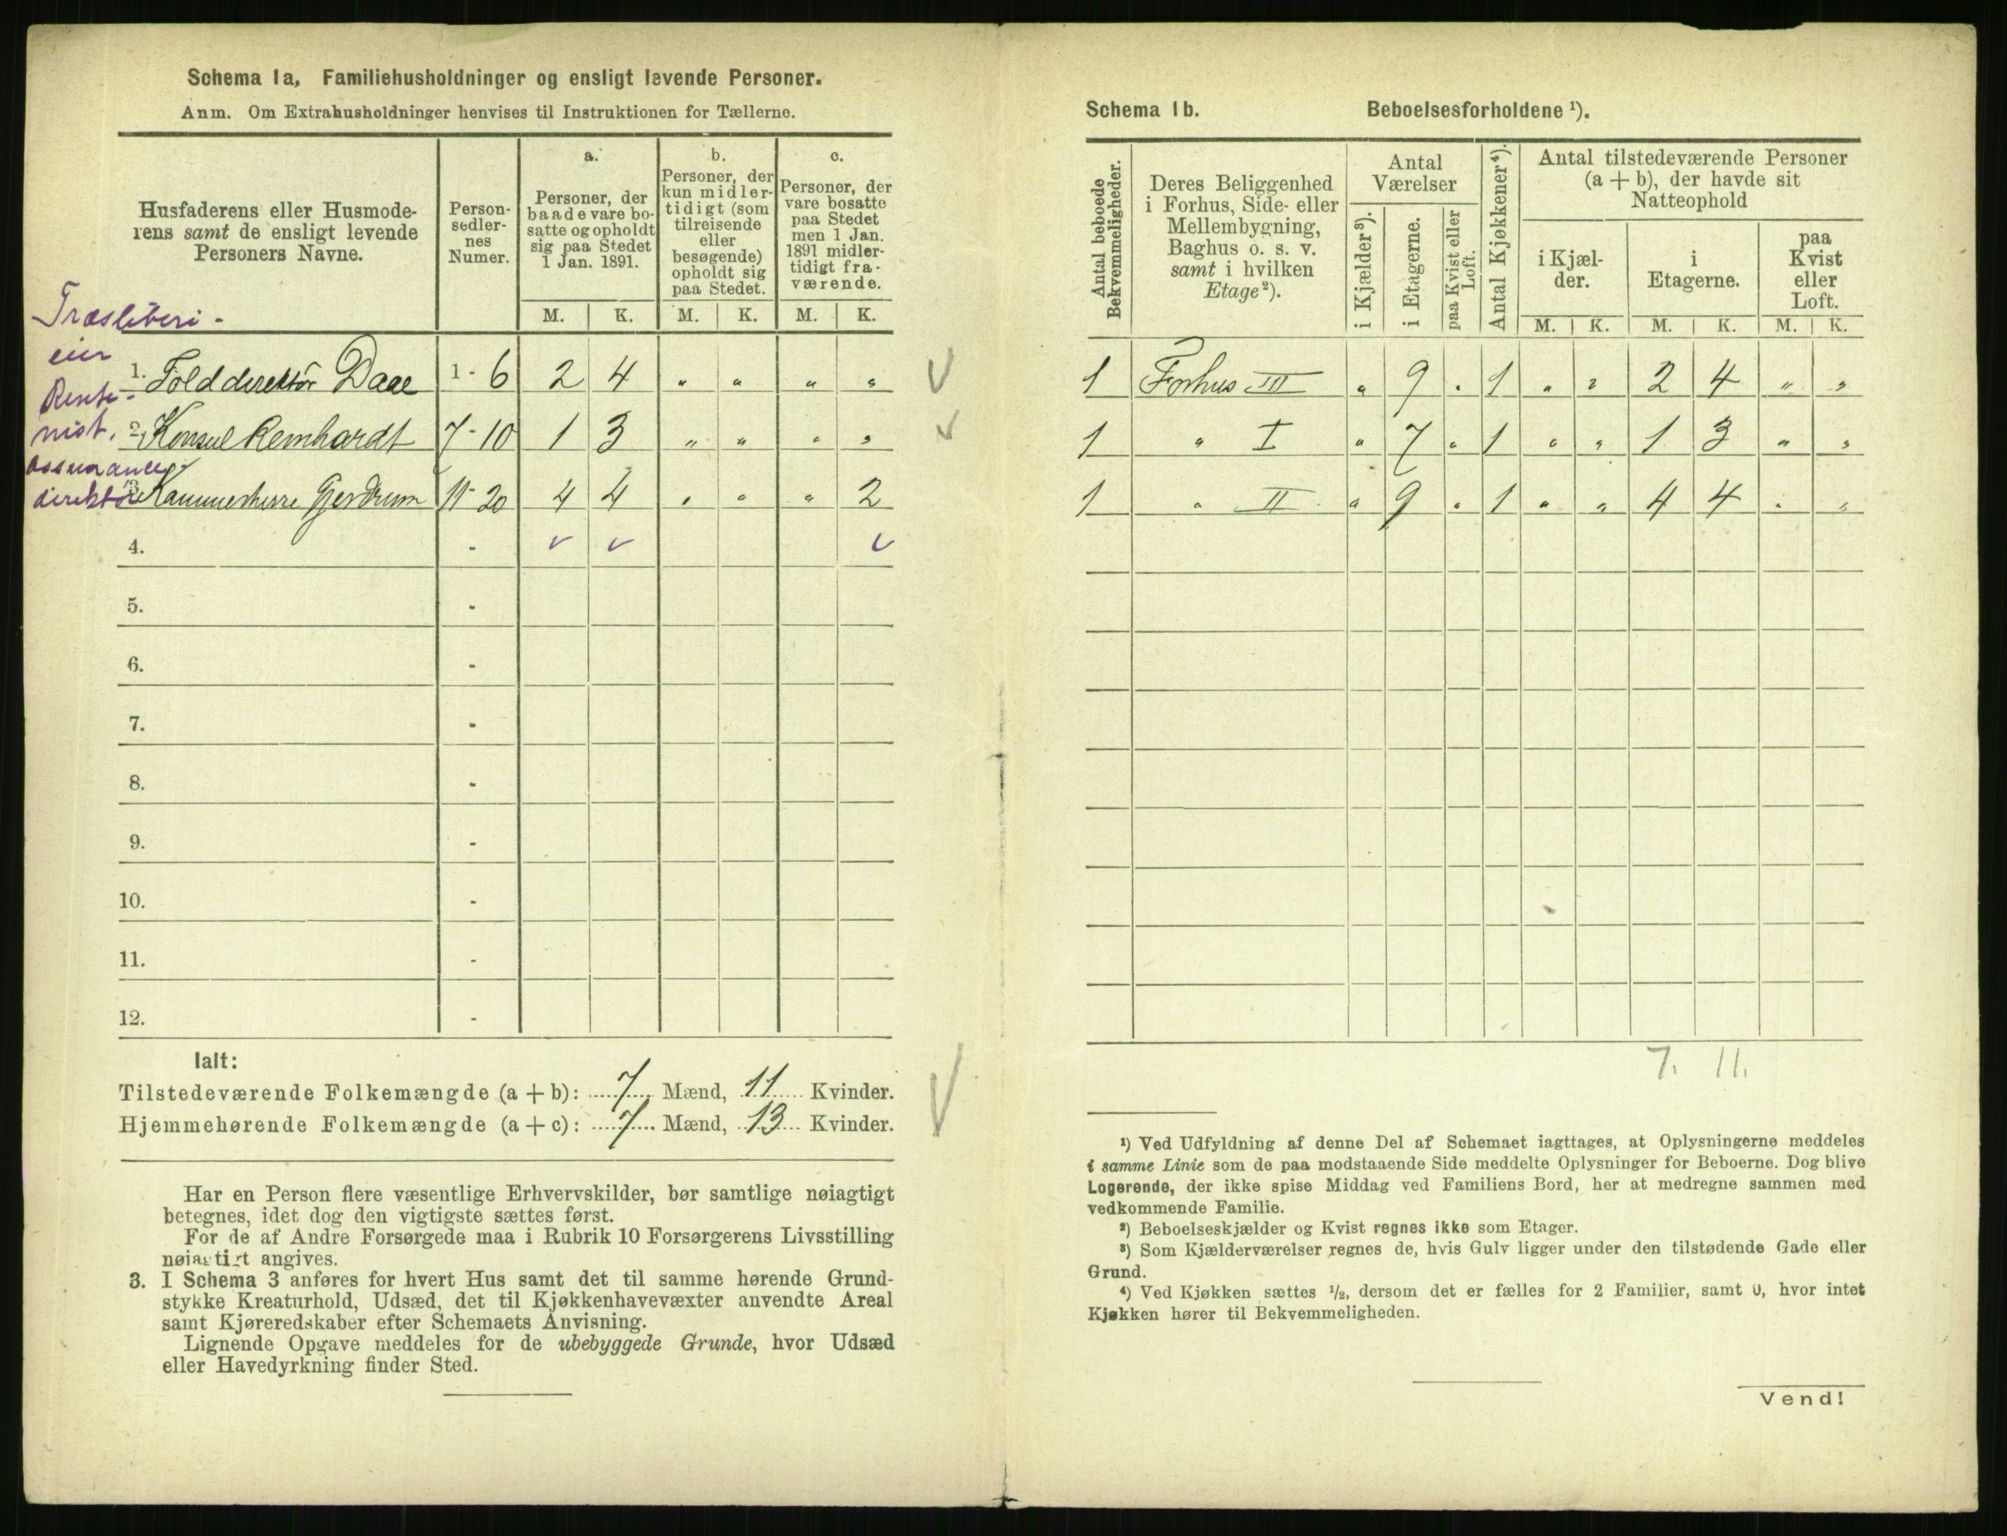 Schema 1a, Familiehusholdninger og ensligt levende Personer.
Anm. Om Extrahusholdninger henvises til Instruktionen for Tællerne.
Husfaderens eller Husmode-
rens samt de ensligt levende
Personers Navne.
Person-
sedler-
nes
Numer.
a.
Personer, der
baade vare bo-
satte og opholdt
sig paa Stedet
1 Jan. 1891.
b.
Personer, der
kun midler-
tidigt (som
tilreisende
eller
besøgende)
opholdt sig
paa Stedet.
c.
Personer, der
vare bosatte
paa Stedet
men 1 Jan.
1891 midler-
tidigt fra-
værende.
M. K. M. K. M. K.
Træsliberi-
eier
1. Tolddirektör Daae 1 - 6 2 4 " " " "
Rente-
nist.
2. Konsul Reinhardt 7 - 10 1 3 " " " "
assurance-
direktør
3. Kammerherre Gjerdrum 11 - 20 4 4 " " " 2
4. -
5. -
6. -
7. -
8. -
9. -
10. -
11. -
12. -
Ialt:
Tilstedeværende Folkemængde (a + b): 7 Mænd, 11 Kvinder.
Hjemmehørende Folkemængde (a + c): 7 Mænd, 13 Kvinder.
Har en Person flere væsentlige Erhvervskilder, bør samtlige nøiagtigt
betegnes, idet dog den vigtigste sættes først.
For de af Andre Forsørgede maa i Rubrik 10 Forsørgerens Livsstilling
nøiagtigt angives.
3. I Schema 3 anføres for hvert Hus samt det til samme hørende Grund-
stykke Kreaturhold, Udsæd, det til Kjøkkenhavevæxter anvendte Areal
samt Kjøreredskaber efter Schemaets Anvisning.
Lignende Opgave meddeles for de ubebyggede Grunde, hvor Udsæd
eller Havedyrkning finder Sted.
Schema 1b. Beboelsesforholdene ¹).
Antal beboede
Bekvemmeligheder.
Deres Beliggenhed
i Forhus, Side- eller
Mellembygning,
Baghus o. s. v.
samt i hvilken
Etage²).
Antal
Værelser
i Kjælder³).
i Etagerne.
paa Kvist eller
Loft.
Antal Kjøkkener⁴).
Antal tilstedeværende Personer
(a + b), der havde sit
Natteophold
i Kjæl-
der.
i
Etagerne.
paa
Kvist
eller
Loft.
M. K. M. K. M. K.
1 Forhus III " 9 " 1 " " 2 4 " "
1 " I " 7 " 1 " " 1 3 " "
1 " II " 9 " 1 " " 4 4 " "
7. 11.
¹) Ved Udfyldning af denne Del af Schemaet iagttages, at Oplysningerne meddeles
i samme Linie som de paa modstaaende Side meddelte Oplysninger for Beboerne. Dog blive
Logerende, der ikke spise Middag ved Familiens Bord, her at medregne sammen med
vedkommende Familie.
²) Beboelseskjælder og Kvist regnes ikke som Etager.
³) Som Kjælderværelser regnes de, hvis Gulv ligger under den tilstødende Gade eller
Grund.
⁴) Ved Kjøkken sættes ½, dersom det er fælles for 2 Familier, samt 0, hvor intet
Kjøkken hører til Bekvemmeligheden.
Vend!